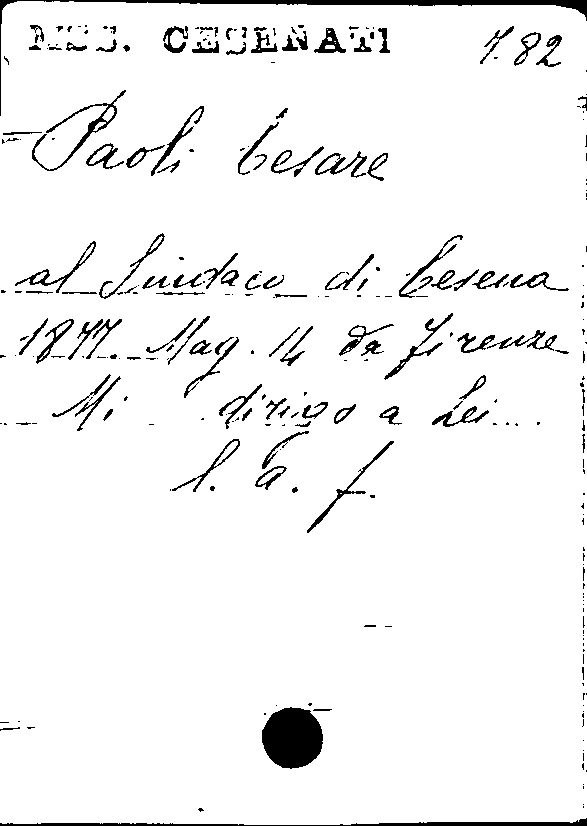 MSS. CESENATI 7.82
Paoli Cesare
al Sindaco di Cesena
1877. Mag. 14 da Firenze
Mi dirigo a Lei....
l. a. f.